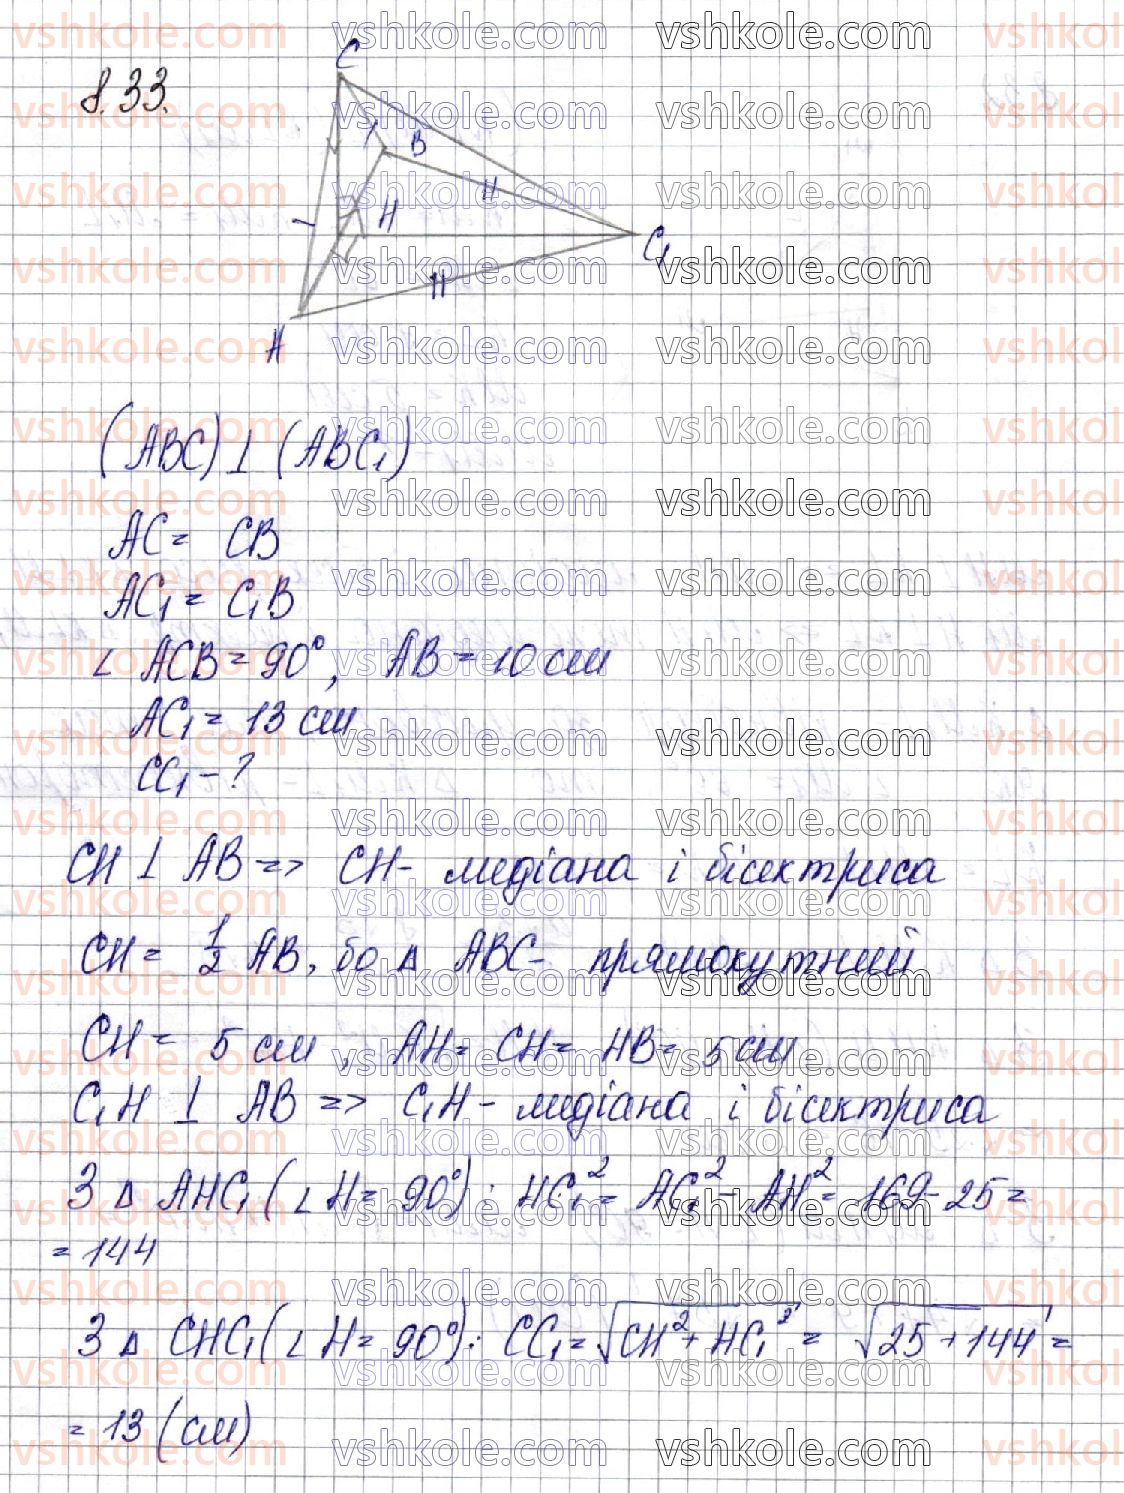 8.33.
C
B
H
C₁
A
(ABC) ⊥ (ABC₁)
AC = CB
AC₁ = C₁B
∠ ACB = 90°, AB = 10 см
AC₁ = 13 см
CC₁ - ?
CH ⊥ AB => CH - медіана і бісектриса
CH = 1/2 AB, бо Δ ABC - прямокутний
CH = 5 см, AH = CH = HB = 5 см
C₁H ⊥ AB => C₁H - медіана і бісектриса
З Δ AHC₁ (∠ H = 90°): HC₁² = AC₁² - AH² = 169 - 25 =
= 144
З Δ CHC₁ (∠ H = 90°): CC₁ = √(CH² + HC₁²) = √(25 + 144) =
= 13 (см)
vshkole.com